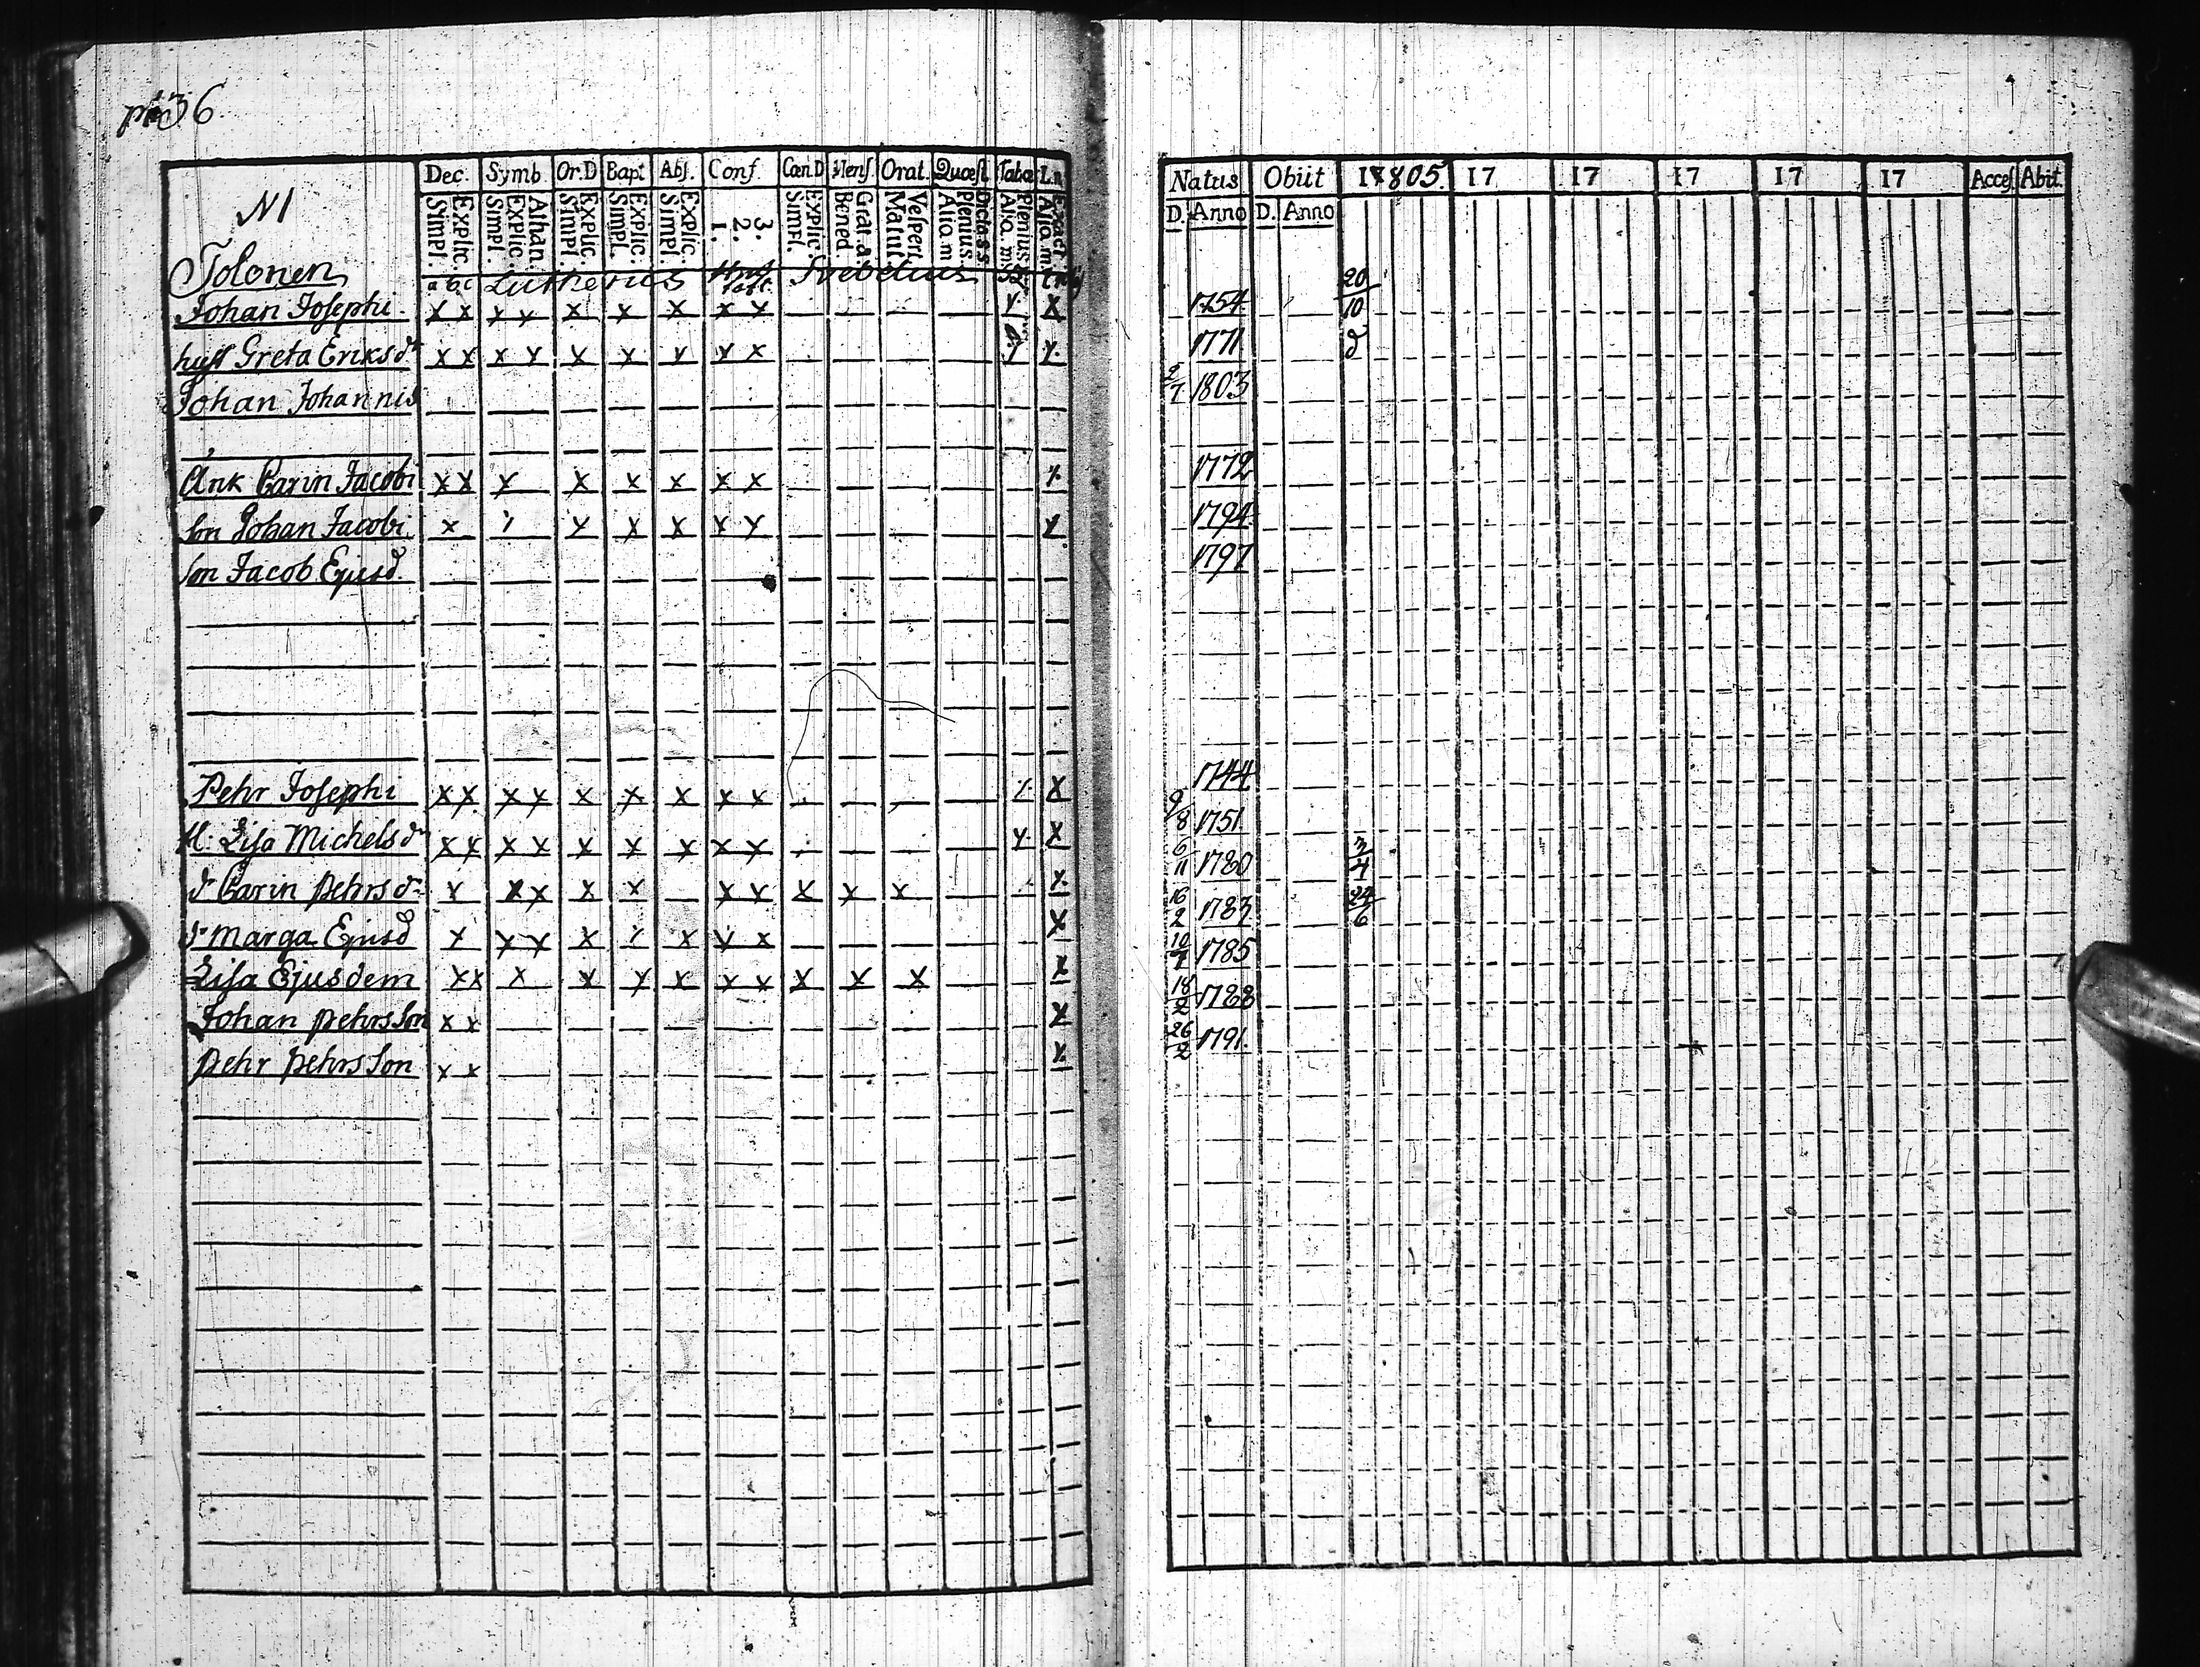 36
Dec. Symb. Or.D Bapt Abs. Conf. Cœn.D Mens. Orat. Quæst. Tabæ L.n
N1
Simpl. Explic. Simpl. Explic. Athan. Simpl. Explic. Simpl. Explic. Simpl. Explic. 1. 2. 3. Simpl. Explic. Bened. Grat. a. Matut. Vespert. Alio m Plenius Dicta s.s. Alio. m. Plenius Alio m. Exact
Tolonen a b c Lutherus Svebelius
Johan Josephi x x x x x x x x x x x
hust Greta Eriksdr x x x x x x x x x x x
Johan Johannis
Ank Carin Jacobi x x x x x x x x x
Son Johan Jacobi x x x x x x x x
Son Jacob Ejusd.
Pehr Josephi x x x x x x x x x x x
H. Lisa Michelsdr x x x x x x x x x x x
dr Carin Pehrsdr x x x x x x x x x x x
dr Marga Ejusd x x x x x x x x x
Lisa Ejusdem x x x x x x x x x x x x
Johan Pehrsson x x x
Pehr Pehrsson x x x
Natus Obiit 1805. 17 17 17 17 17 Acces. Abit.
D. Anno D. Anno
1754 20/10
1771 d
2/7 1803
1772
1794
1797
1744
9/8 1751
6/11 1780 3/4
16/2 1783 24/6
10/7 1785
18/2 1788
26/2 1791.